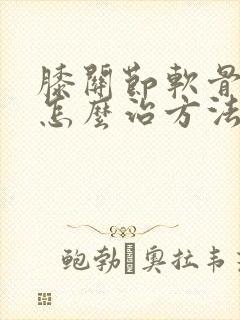 膝關節軟骨
怎麼治方法
鮑勃·奧拉韋